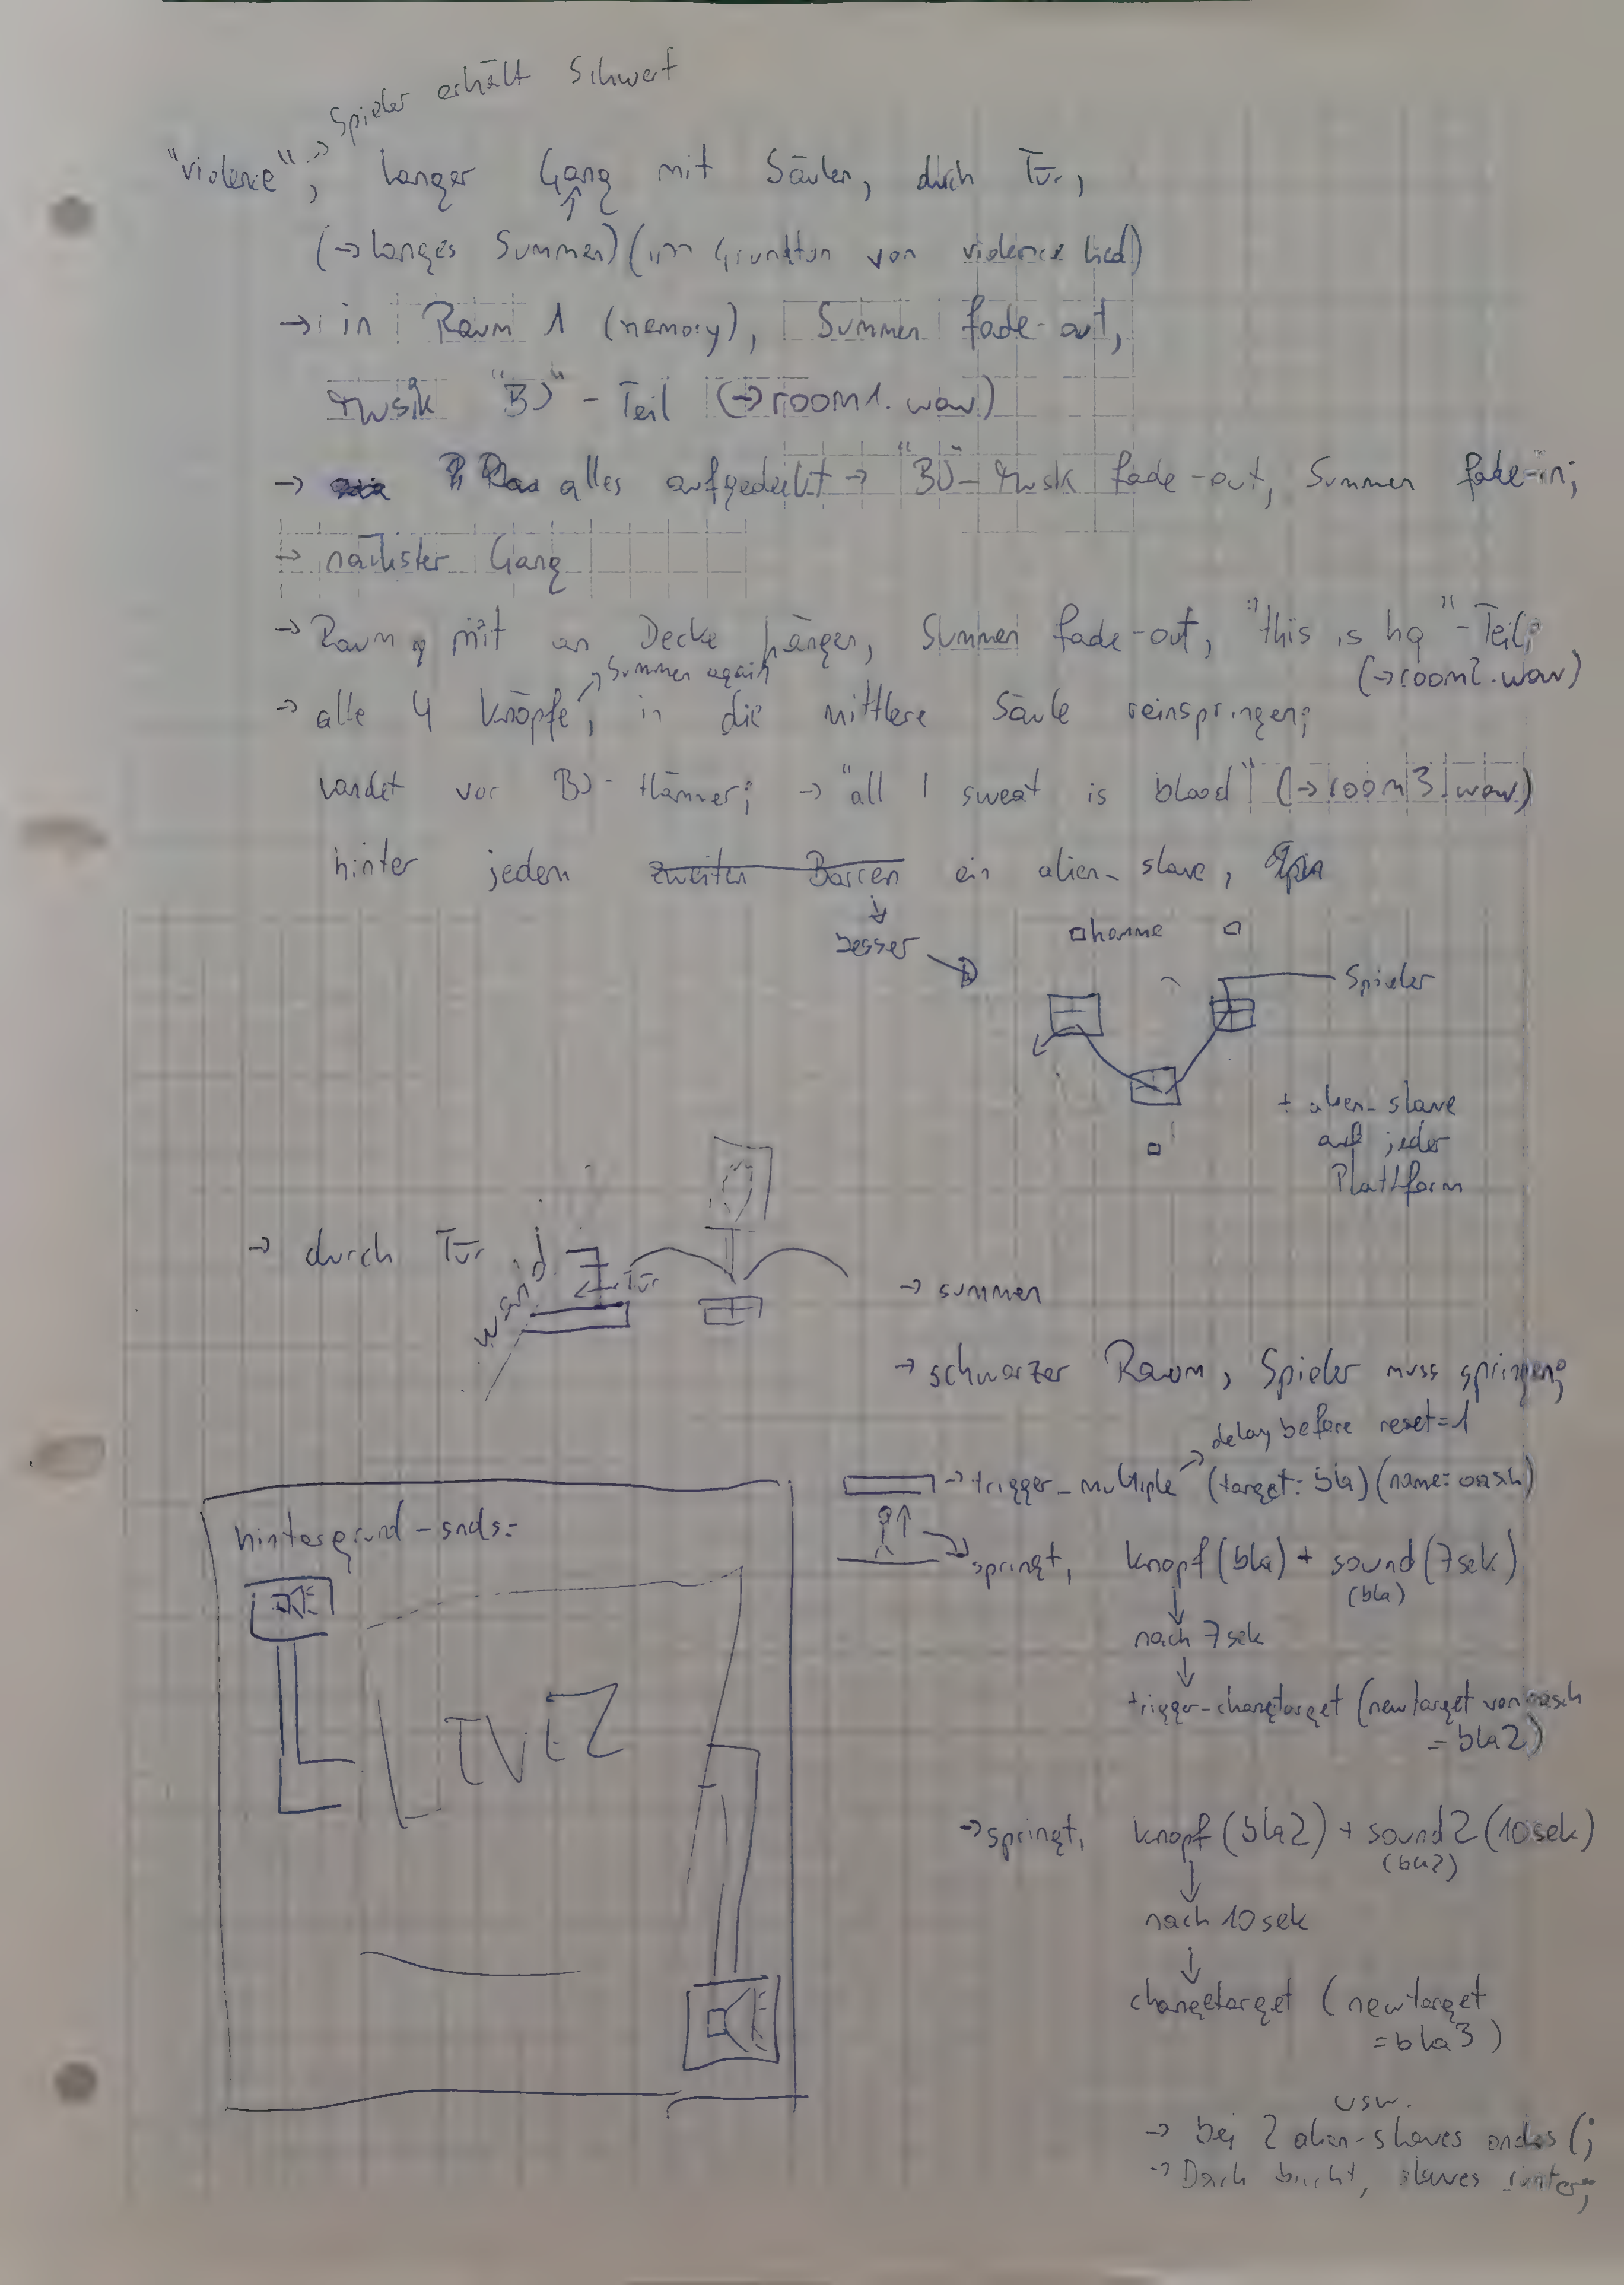 → Spieler erhält Schwert
"violence", langer Gang mit Säulen, durch Tür,
(→ langes Summen) (im Grundton von violence lied)
→ in Raum 1 (memory), Summen fade-out,
Musik "BJ" - Teil (→ room1.wav)
→ alles aufgedeckt → "BJ"- Musik fade-out, Summen fade-in;
→ nächster Gang
→ Raum mit an Decke hängen, Summen fade-out, "this is hq" - Teil;
(→ room2.wav)
→ Summen again
→ alle 4 Knöpfe, in die mittlere Säule reinspringen;
landet vor BJ - Hämmer; → "all I sweat is blood" (→ room3.wav)
hinter jedem zweiten Barren ein alien_slave,
besser
Spieler
+ alien_slave
auf jeder
Plattform
→ durch Tür
Wand
Tür
→ summen
→ schwarzer Raum, Spieler muss springen;
delay before reset=1
→ trigger_multiple (target: bla) (name: oasch)
springt, Knopf (bla) + sound (7sek)
(bla)
nach 7 sek
trigger-changetarget (newtarget von oasch
= bla2)
hintergrund - snds:
LIVEZ
→ springt, Knopf (bla2) + sound2 (10sek)
(bla2)
nach 10 sek
changetarget (newtarget
= bla3)
usw.
→ bei 2 alien-slaves anders (;
→ Dach bricht, slaves runter;